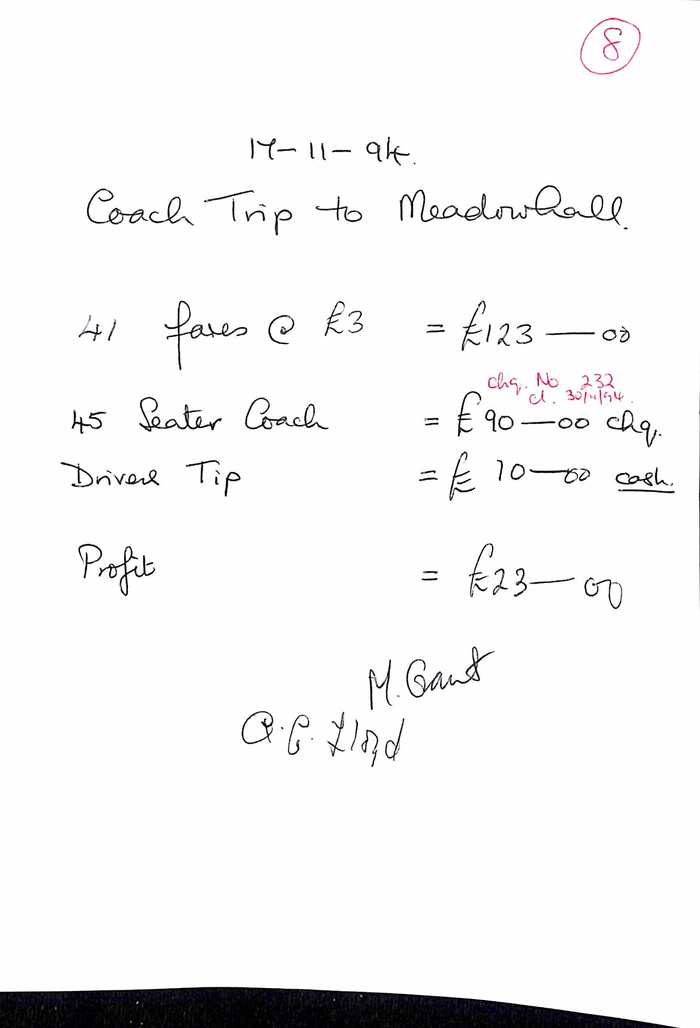 8
17-11-94.
Coach Trip to Meadowhall.
41 fares @ £3 = £123—00
chq. No 232
cl. 30/11/94.
45 Seater Coach = £90—00 chq.
Drivers Tip = £10—00 cash.
Profit = £23—00
M. Gant
Lloyd